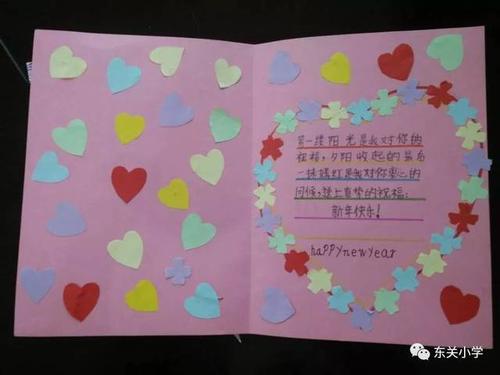 第一缕阳光是我对你的
祝福,夕阳收起的最后
一抹嫣红是我对你衷心的
问候,送上真挚的祝福:
新年快乐!
happy new year
东关小学